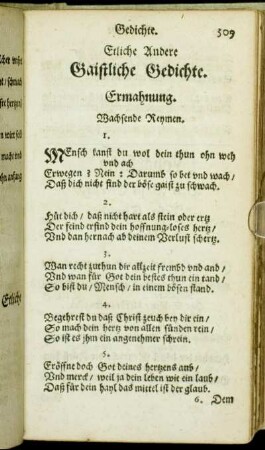 Gedichte. 509
Etliche Andere
Gaistliche Gedichte.
Ermahnung.
Wachsende Reymen.
1.
MEnsch kanst du wol dein thun ohn weh
vnd ach
Erwegen? Nein: Darumb so bet vnd wach/
Daß dich nicht find der böse gaist zu schwach.
2.
Hüt dich/ daß nicht hart als stein oder ertz
Der feind erfind dein hoffnung-loses hertz/
Vnd dan hernach ab deinem Verlust schertz.
3.
Wan recht zuthun dir allzeit frembd vnd and/
Vnd wan für Got dein bestes thun ein tand/
So bist du/ Mensch/ in einem bösen stand.
4.
Begehrest du daß Christ zeuch bey dir ein/
So mach dein hertz von allen sünden rein/
So ist es jhm ein angenehmer schrein.
5.
Eröffne doch Got deines hertzens aub/
Vnd merck/ weil ja dein leben wie ein laub/
Daß für dein hayl das mittel ist der glaub.
6. Dem
Etliche